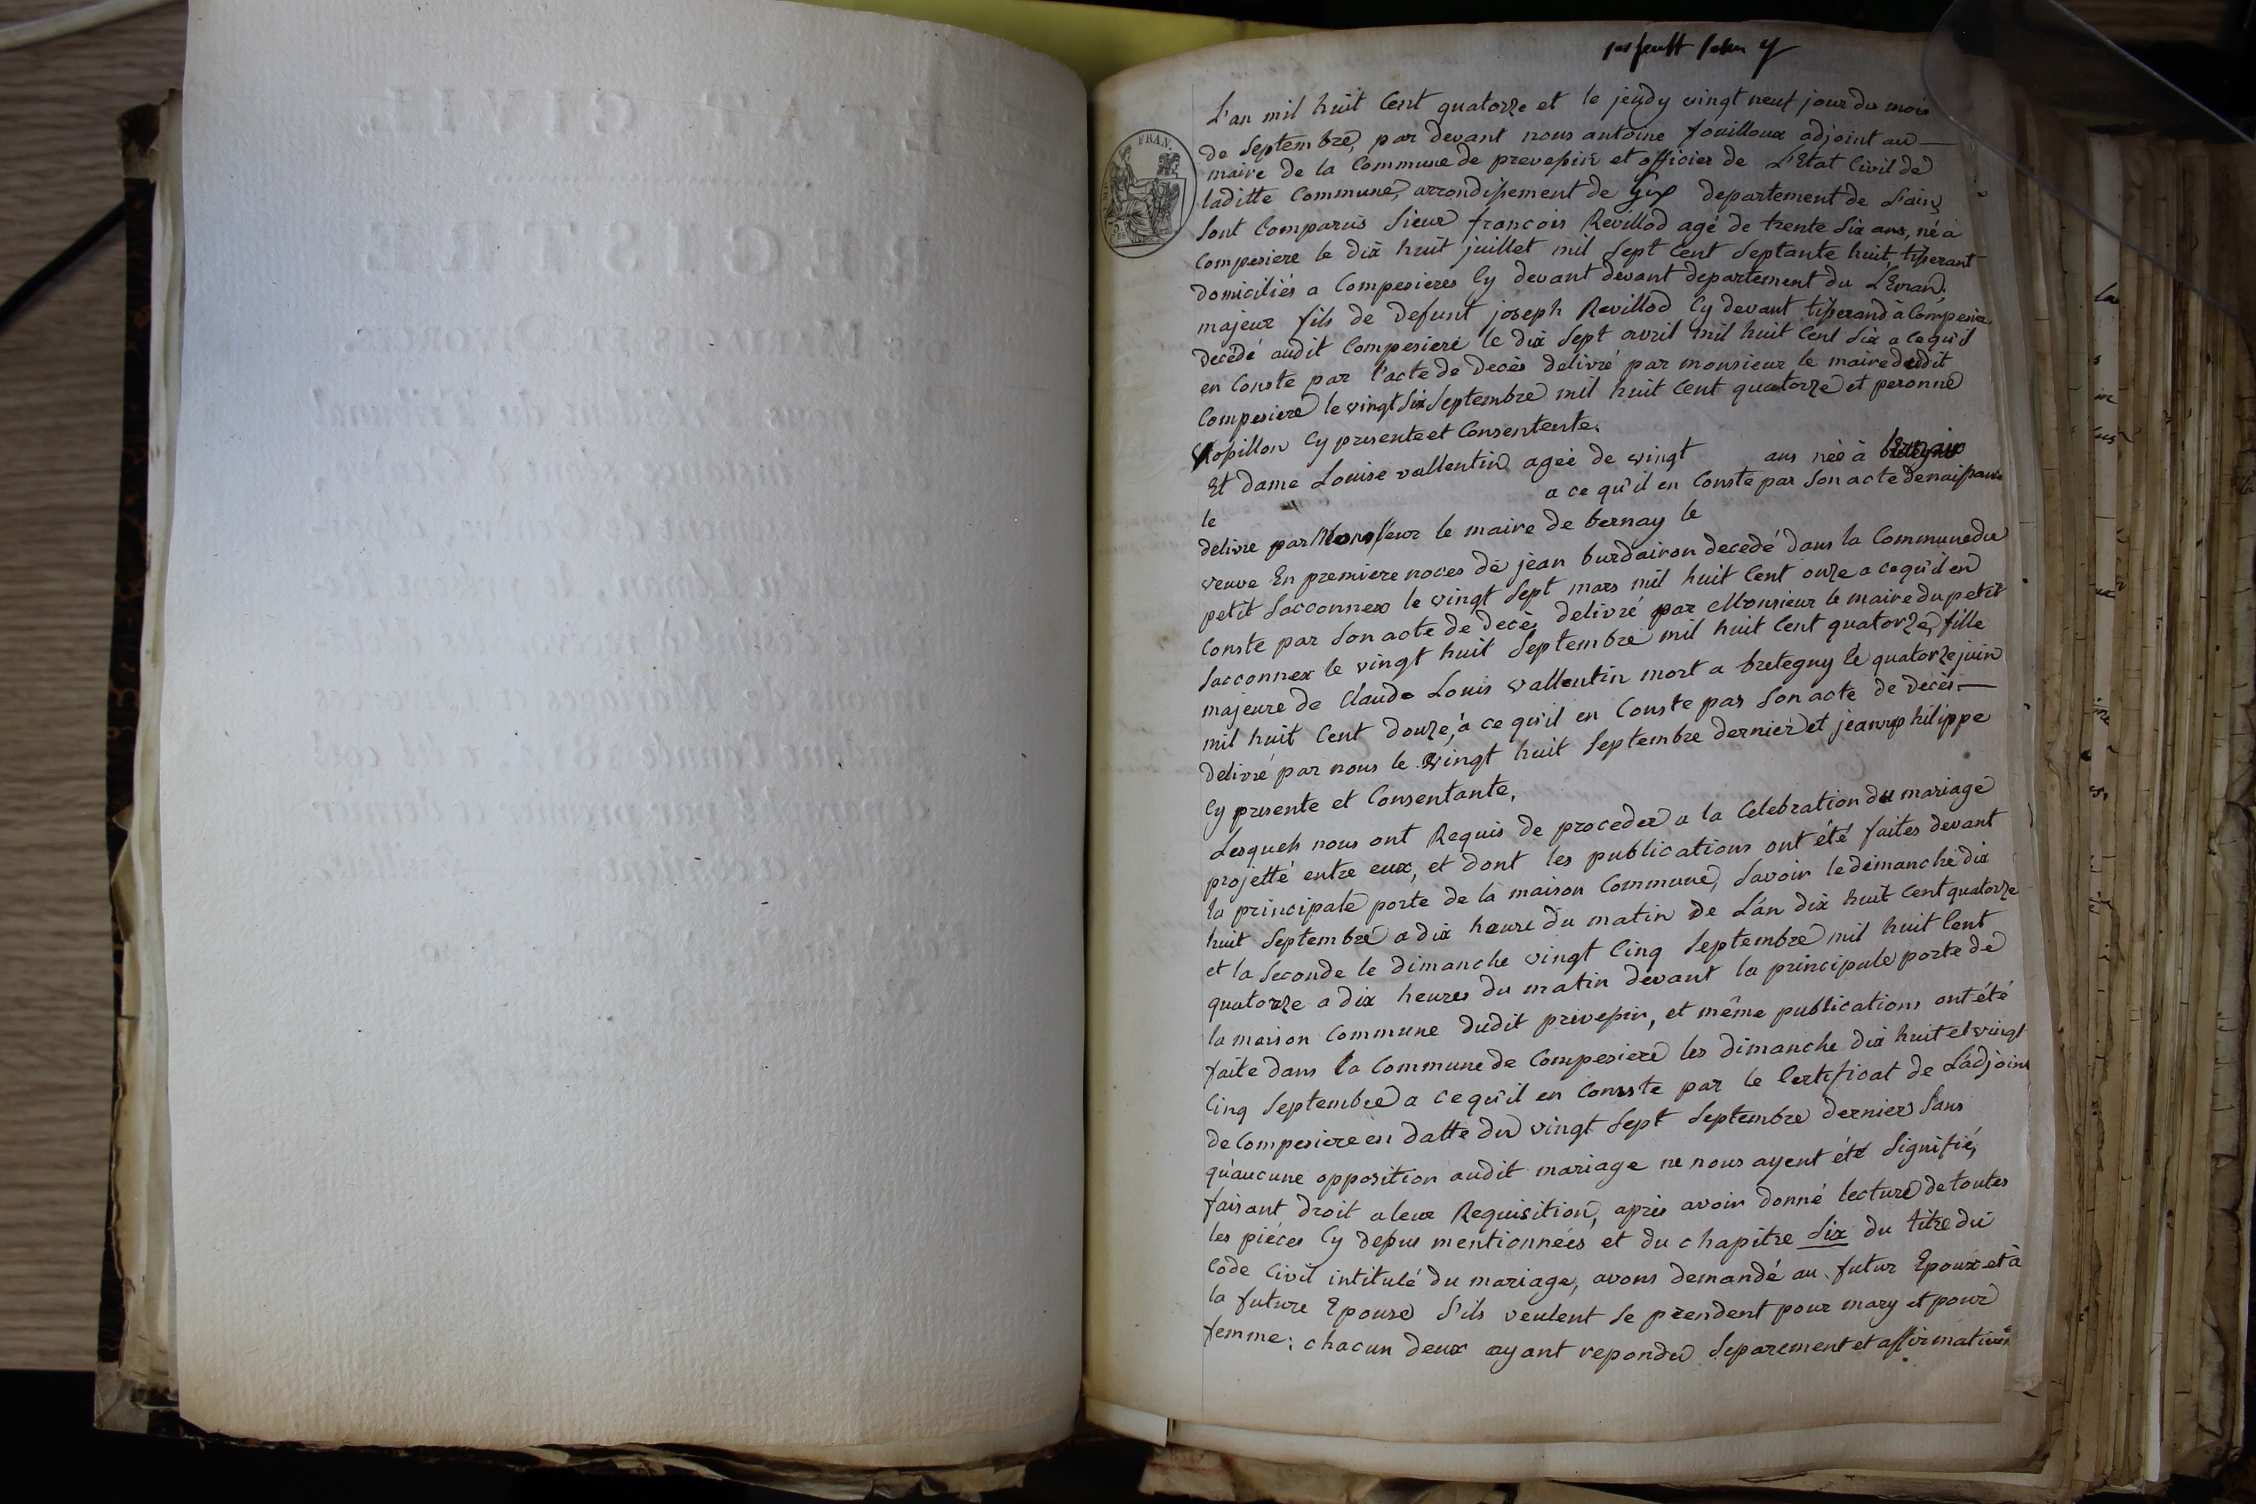 L'an mil huit Cent quatorze et le jeudy vingt neuf jour du mois
de Septembre, par devant nous antoine fouilloux adjoint au
maire de la Commune de prevessin et officier de L'Etat Civil de
laditte Commune, arrondissement de Gex departement de L'ain,
Sont Comparus Sieur françois Revillod agé de trente Six ans, né a
Compesiere le dix huit juillet mil Sept Cent Septante huit, tisserant
domiciliés a Compesieres Cy devant devant departement du Léman,
majeur fils de defunt joseph Revillod Cy devant tisserand à Compesiere
decédé audit Compesiere le dix Sept avril mil huit Cent Six a ce qu'il
en Conste par l'acte de decès delivré par monsieur le maire dudit
Compesiere le vingt Six Septembre mil huit Cent quatorze et peronne
Cy presente et Consentente.
Et dame Louise vallentin agée de vingt ans née à
le a ce qu'il en Conste par Son acte de naissance
delivre par Monsieur le maire de bernay le
veuve En premiere noces de jean burdairon decedé dans la Commune du
petit Sacconnex le vingt Sept mars mil huit Cent onze a ce qu'il en
Conste par Son acte de decès delivré par Monsieur le maire du petit
Sacconnex le vingt huit Septembre mil huit Cent quatorze, fille
majeure de Claude Louis vallentin mort a bretegny le quatorze juin
mil huit Cent douze, a ce qu'il en Conste par Son acte de decès
delivré par nous le vingt huit Septembre dernier et jeanne philippe
Cy presente et Consentante,
Lesquels nous ont Requis de proceder a la Celebration du mariage
projetté entre eux, et dont les publications ont été faites devant
la principale porte de la maison Commune, Savoir le dimanche dix
huit Septembre a dix heure du matin de L'an dix huit Cent quatorze
et la Seconde le dimanche vingt Cinq Septembre mil huit Cent
quatorze a dix heures du matin devant la principale porte de
la maison Commune dudit prevessin, et même publications ont été
faite dans la Commune de Compesiere les dimanche dix huit et vingt
Cinq Septembre a ce qu'il en Conste par le Certificat de L'adjoint
de Compesiere en datte du vingt Sept Septembre dernier Sans
qu'aucune opposition audit mariage ne nous ayent été Signifié,
faisant droit a leur Requisition, après avoir donné lecture de toutes
les piéces Cy depus mentionnées et du chapitre Six du titre du
Code Civil intitulé du mariage, avons demandé au futur Epoux et à
la future Epouse S'ils veulent Se prendent pour mary et pour
femme: chacun deux ayant repondu Separement et affirmativem